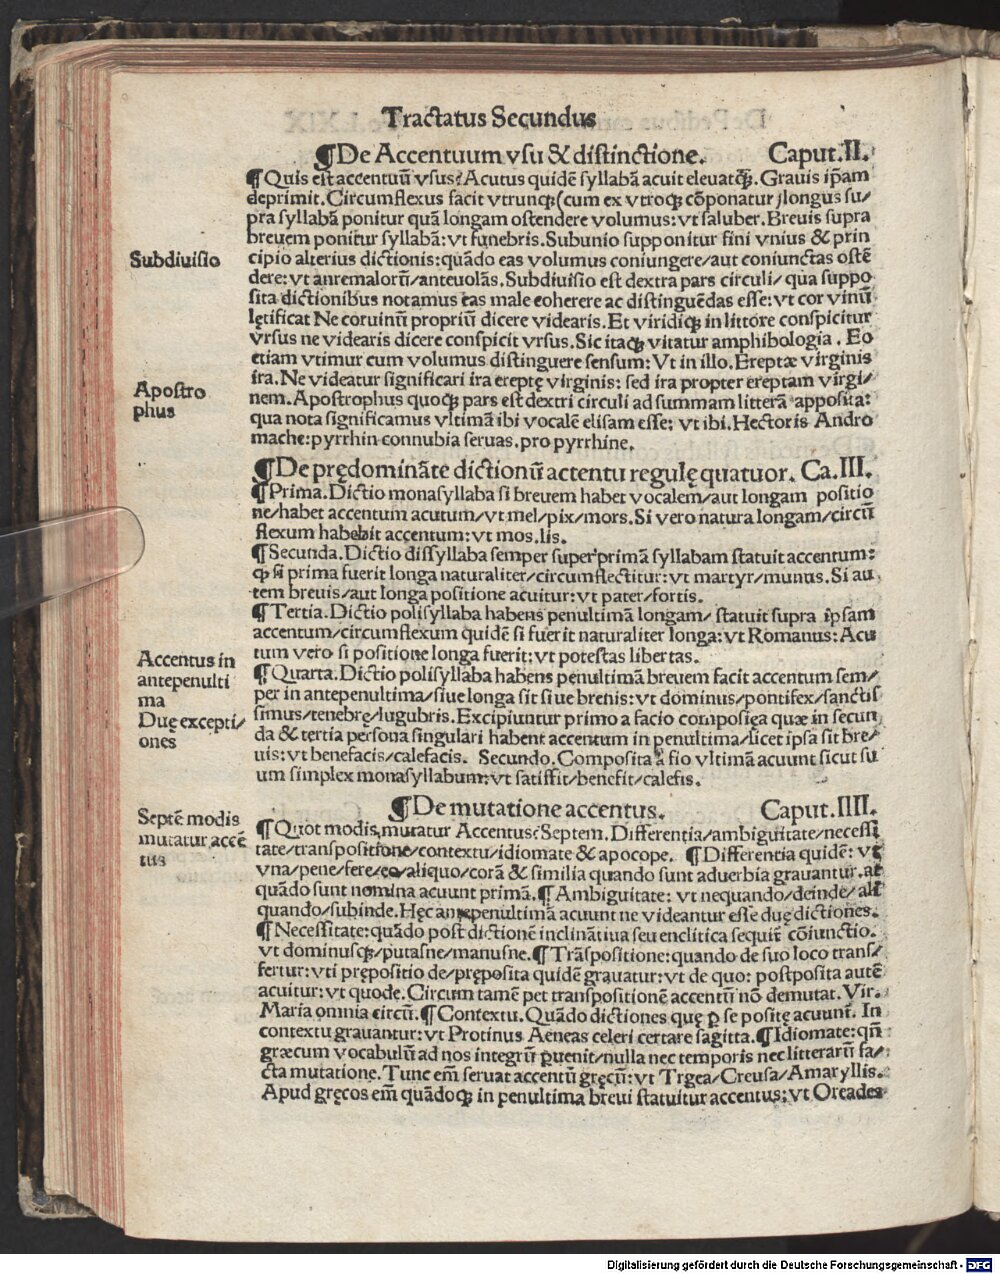 Tractatus Secundus
¶De Accentuum vsu & distinctione. Caput.II.
¶Quis est accentuū vsus? Acutus quidē syllabā acuit eleuatqꝫ. Grauis ip̄am
deprimit. Circumflexus facit vtrunqꝫ/cum ex vtroqꝫ cōponatur/longus su/
pra syllabā ponitur quā longam ostendere volumus: vt saluber. Breuis supra
breuem ponitur syllabā: vt funebris. Subunio supponitur fini vnius & prin
Subdiuisio
cipio alterius dictionis: quādo eas volumus coniungere/aut coniunctas ostē
dere: vt anremalorū/anteuolās. Subdiuisio est dextra pars circuli/ qua suppo
sita dictionibus notamus eas male coherere ac distinguēdas esse: vt cor vinū
lętificat Ne coruinū propriū dicere videaris. Et viridiqꝫ in littore conspicitur
vrsus ne videaris dicere conspicit vrsus. Sic itaqꝫ vitatur amphibologia. Eo
etiam vtimur cum volumus distinguere sensum: Vt in illo. Ereptæ virginis
Apostro
phus
ira. Ne videatur significari ira ereptę virginis: sed ira propter ereptam virgi/
nem. Apostrophus quoqꝫ pars est dextri circuli ad summam litterā apposita:
qua nota significamus vltimā ibi vocalē elisam esse: vt ibi. Hectoris Andro
mache: pyrrhin connubia seruas. pro pyrrhine.
¶De prędomināte dictionū actentu regulę quatuor. Ca.III.
¶Prima. Dictio monasyllaba si breuem habet vocalem/aut longam positio
ne/habet accentum acutum/vt mel/pix/mors. Si vero natura longam/circū
flexum habebit accentum: vt mos.lis.
¶Secunda. Dictio dissyllaba semper super primā syllabam statuit accentum:
ꝙ si prima fuerit longa naturaliter/circumflectitur: vt martyr/munus. Si au
tem breuis/aut longa positione acuitur: vt pater/fortis.
¶Tertia. Dictio polisyllaba habens penultimā longam/ statuit supra ipsam
accentum/circumflexum quidē si fuerit naturaliter longa: vt Romanus: Acu
tum vero si positione longa fuerit: vt potestas libertas.
Accentus in
antepenulti
ma
Duę excepti/
ones
¶Quarta. Dictio polisyllaba habens penultimā breuem facit accentum sem/
per in antepenultima/siue longa sit siue breuis: vt dominus/pontifex/sanctis
simus/tenebrę/lugubris. Excipiuntur primo a facio composita quæ in secun
da & tertia persona singulari habent accentum in penultima/licet ipsa sit bre/
uis: vt benefacis/calefacis. Secundo. Composita a fio vltimā acuunt sicut su
um simplex monasyllabum: vt satisfit/benefit/calefis.
¶De mutatione accentus. Caput.IIII.
Septē modis
mutatur accē
tus
¶Quot modis mutatur Accentus? Septem. Differentia/ambiguitate/necessi
tate/transpositione/contextu/idiomate & apocope. ¶Differentia quidē: vt
vna/pene/fere/eo/aliquo/corā & similia quando sunt aduerbia grauantur. at
quādo sunt nomina acuunt primā. ¶Ambiguitate: vt nequando/deinde/ali
quando/subinde. Hęc antepenultimā acuunt ne videantur esse duę dictiones.
¶Necessitate: quādo post dictionē inclinatiua seu enclitica sequit̄ cōiunctio.
vt dominusqꝫ/putasne/manusne. ¶Trāspositione: quando de suo loco trans/
fertur: vti prępositio de/pręposita quidē grauatur: vt de quo: postposita autē
acuitur: vt quode. Circum tamē pet transpositionē accentū nō demutat. Vir.
Maria omnia circū. ¶Contextu. Quādo dictiones quę ꝑ se positę acuunt. In
contextu grauantur: vt Protinus Aeneas celeri certare sagitta. ¶Idiomate: qn̄
græcum vocabulū ad nos integrū ꝑuenit/nulla nec temporis nec litterarū fa/
cta mutatione. Tunc em̄ seruat accentū gręcū: vt Trgea/Creusa/Amaryllis.
Apud gręcos em̄ quādoqꝫ in penultima breui statuitur accentus: vt Oreades
Digitalisierung gefördert durch die Deutsche Forschungsgemeinschaft - DFG